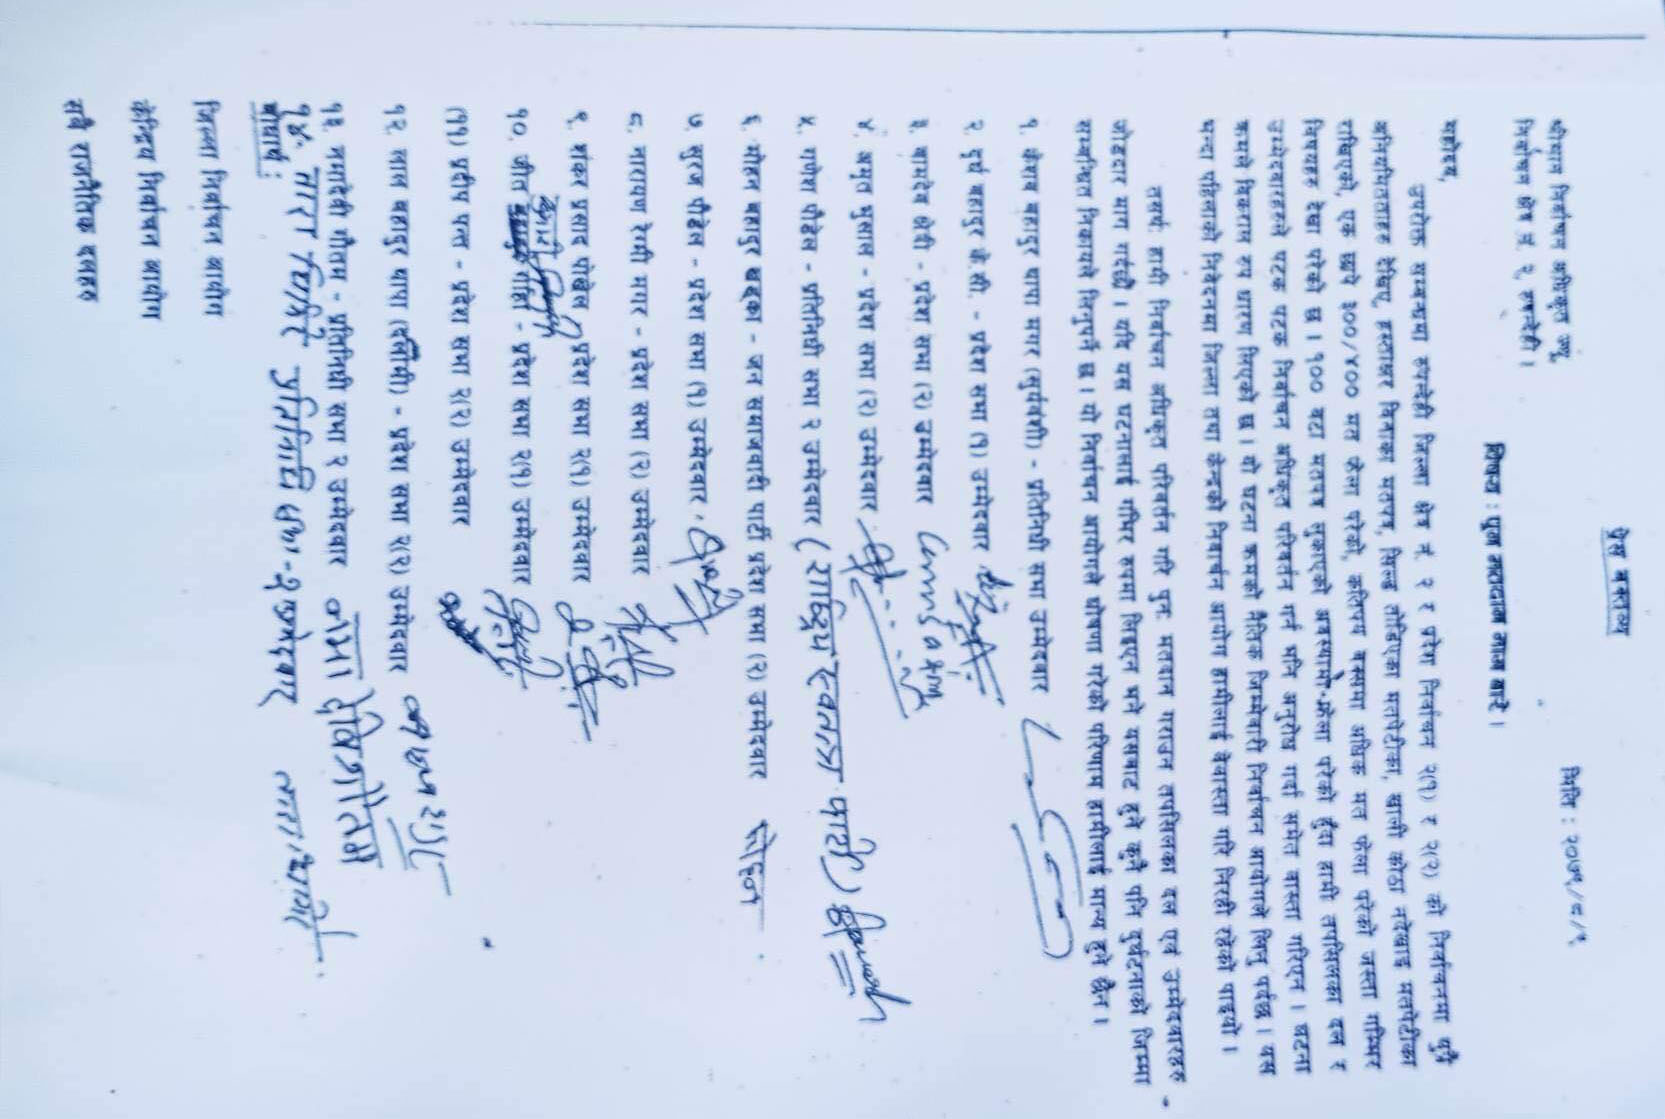 प्रेस वक्तव्य
मिति : २०७९/८/९
श्रीमान निर्वाचन अधिकृत ज्यू,
निर्वाचन क्षेत्र नं. २, रुपन्देही ।
विषय : पुन मतदानका लागि बारे ।
महोदय,
उपरोक्त सम्बन्धमा रुपन्देही जिल्ला क्षेत्र नं. २ र प्रदेश निर्वाचन २(१) र २(२) को निर्वाचनमा पुरै
अनियमितताहरु देखिए, हस्ताक्षर विनाका मतपत्र, सिल्ड तोडिएका मतपेटीका, खाली कोठा नदेखाइ मतपेटीका
राखिएको, एक छापे ३००/४०० मत फेला परेको, कतिपय बक्समा अधिक मत फेला परेको जस्ता गम्भिर
विषयहरु देखा परेको छ । १०० वटा मतपत्र लुकाएको अवस्थामा फेला परेको हुँदा हामी तपसिलका दल र
उम्मेदवारहरुले पटक पटक निर्वाचन अधिकृत परिवर्तन गर्न भनि अनुरोध गर्दा समेत वास्ता गरिएन । घटना
क्रमले विकराल रुप धारण लिएको छ । यो घटना क्रमको नैतिक जिम्मेवारी निर्वाचन आयोगले लिनु पर्दछ । यस
भन्दा पहिलाको निवेदनमा जिल्ला तथा केन्द्रको निर्वाचन आयोग हामीलाई बेवास्ता गरि सिरही रहेको पाइयो ।
तसर्थ हामी निर्वाचन अधिकृत परिवर्तन गरि पुन: मतदान गराउन तपसिलका दल एवं उम्मेदवारहरु
जोडदार माग गर्दछौं । यदि यस घटनालाई गम्भिर रुपमा लिइएन भने यसबाट हुने कुनै पनि दुर्घटनाको जिम्मा
सम्बन्धित निकायले लिनुपर्ने छ । यो निर्वाचन आयोगले घोषणा गरेको परिणाम हामीलाई मान्य हुने छैन ।
१. केशव बहादुर थापा मगर (सुर्यवंशी) - प्रतिनिधी सभा उम्मेदवार
२. दुर्ग बहादुर के.सी. - प्रदेश सभा (१) उम्मेदवार
३. वामदेव क्षेत्री - प्रदेश सभा (२) उम्मेदवार
४. अमृत भुसाल - प्रदेश सभा (२) उम्मेदवार
५. गणेश पौडेल - प्रतिनिधी सभा २ उम्मेदवार (राष्ट्रिय स्वतन्त्र पार्टी)
६. मोहन बहादुर खड्का - जन समाजवादी पार्टी प्रदेश सभा (२) उम्मेदवार मोहन
७. सुरज पौडेल - प्रदेश सभा (१) उम्मेदवार
८. नारायण रेश्मी मगर - प्रदेश सभा (२) उम्मेदवार
९. शंकर प्रसाद पोखेल प्रदेश सभा २(१) उम्मेदवार
१०. जीत गाहा - प्रदेश सभा २(१) उम्मेदवार
(११) प्रदीप पन्त - प्रदेश सभा २(२) उम्मेदवार
१२. लाल बहादुर थापा - प्रदेश सभा २(२) उम्मेदवार
१३. नमादेवी गौतम - प्रतिनिधी सभा २ उम्मेदवार नमा देवि गौतम
१४. तारा गिरी प्रतिनिधि सभा-२ उम्मेदवार
बोधार्थ :
जिल्ला निर्वाचन आयोग
केन्द्रिय निर्वाचन आयोग
सवै राजनैतिक दलहरु